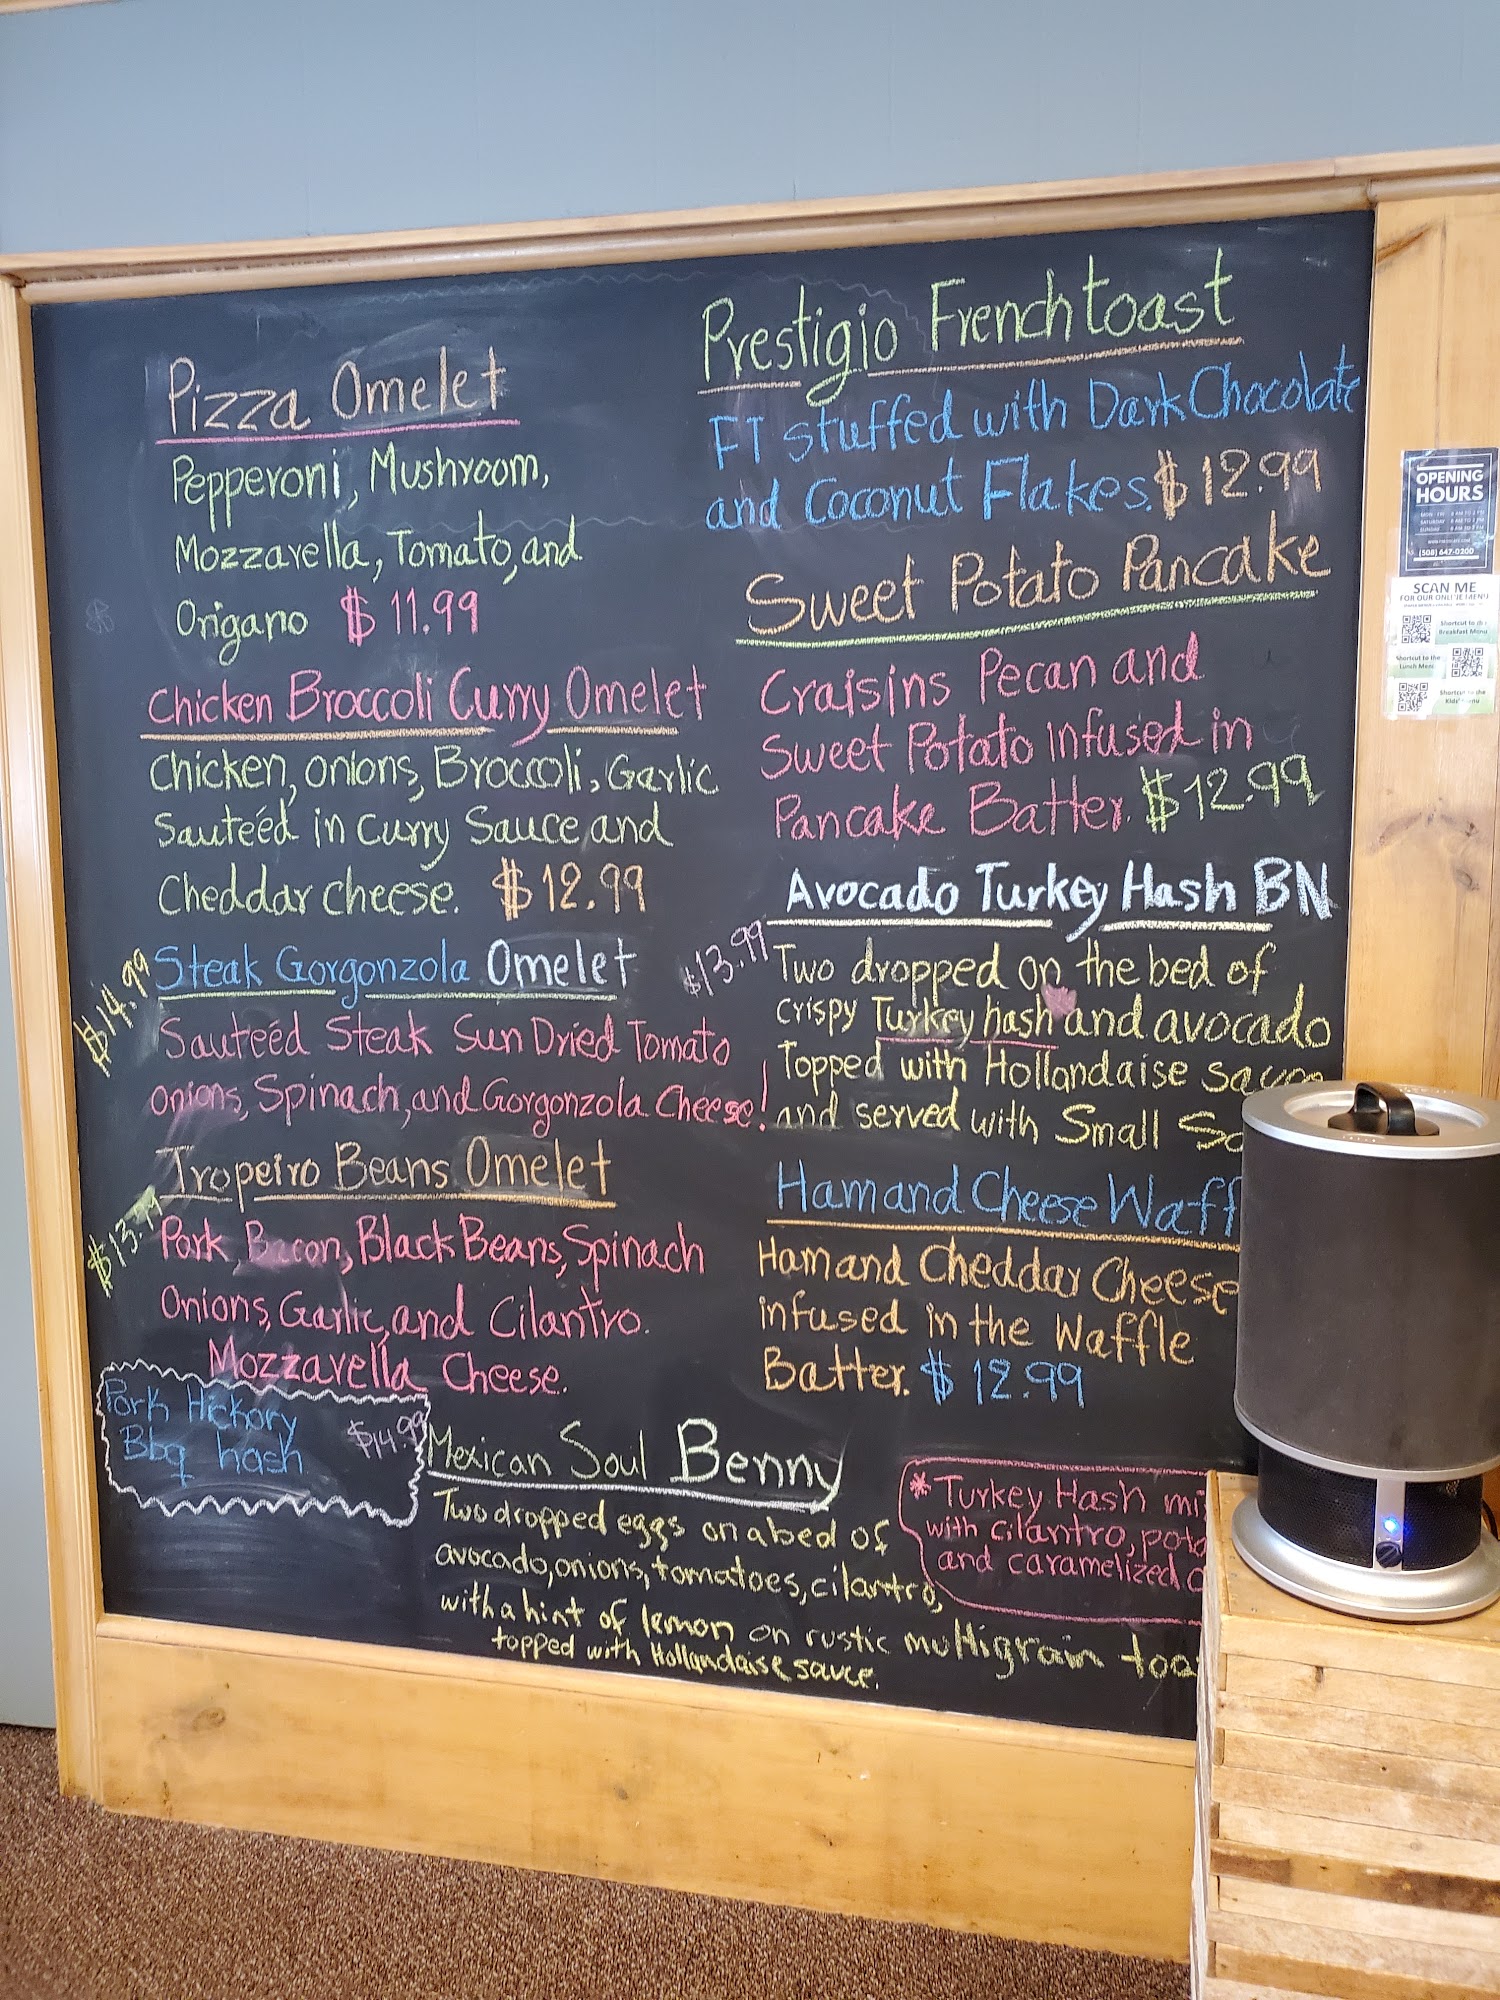 Pizza Omelet
Pepperoni, Mushroom,
Mozzarella, Tomato, and
Origano $11.99
Chicken Broccoli Curry Omelet
Chicken, onions, Broccoli, Garlic
Sauteéd in Curry Sauce and
Cheddar cheese. $12.99
Steak Gorgonzola Omelet
$14.99
Sauteéd Steak Sun Dried Tomato
onions, Spinach, and Gorgonzola Cheese!
Tropeiro Beans Omelet
Pork Bacon, Black Beans, Spinach
Onions, Garlic, and Cilantro.
Mozzarella Cheese.
Pork Hickory
Bbq hash $14.99
Prestigio French toast
FT stuffed with Dark Chocolate
and Coconut Flakes. $12.99
Sweet Potato Pancake
Craisins Pecan and
Sweet Potato infused in
Pancake Batter. $12.99
Avocado Turkey Hash BN
$13.99
Two dropped on the bed of
crispy Turkey hash and avocado
Topped with Hollandaise sauce
and served with Small
Ham and Cheese Waff
Ham and Cheddar Cheese
infused in the Waffle
Batter. $12.99
Mexican Soul Benny
Two dropped eggs on a bed of
avocado, onions, tomatoes, cilantro,
with a hint of lemon on rustic multigrain toas
topped with Hollandaise sauce.
*Turkey Hash mi
with cilantro, pota
and caramelized o
OPENING
HOURS
(508) 647-0200
SCAN ME
FOR OUR ONLINE MENU
Shortcut to the
Breakfast Menu
Shortcut to the
Lunch Menu
Shortcut to the
Kids' Menu